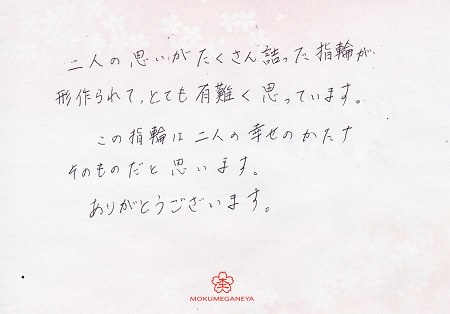 二人の思いがたくさん詰った指輪が
形作られて、とても有難く思っています。
この指輪は二人の幸せのかたち
そのものだと思います。
ありがとうございます。
MOKUMEGANEYA